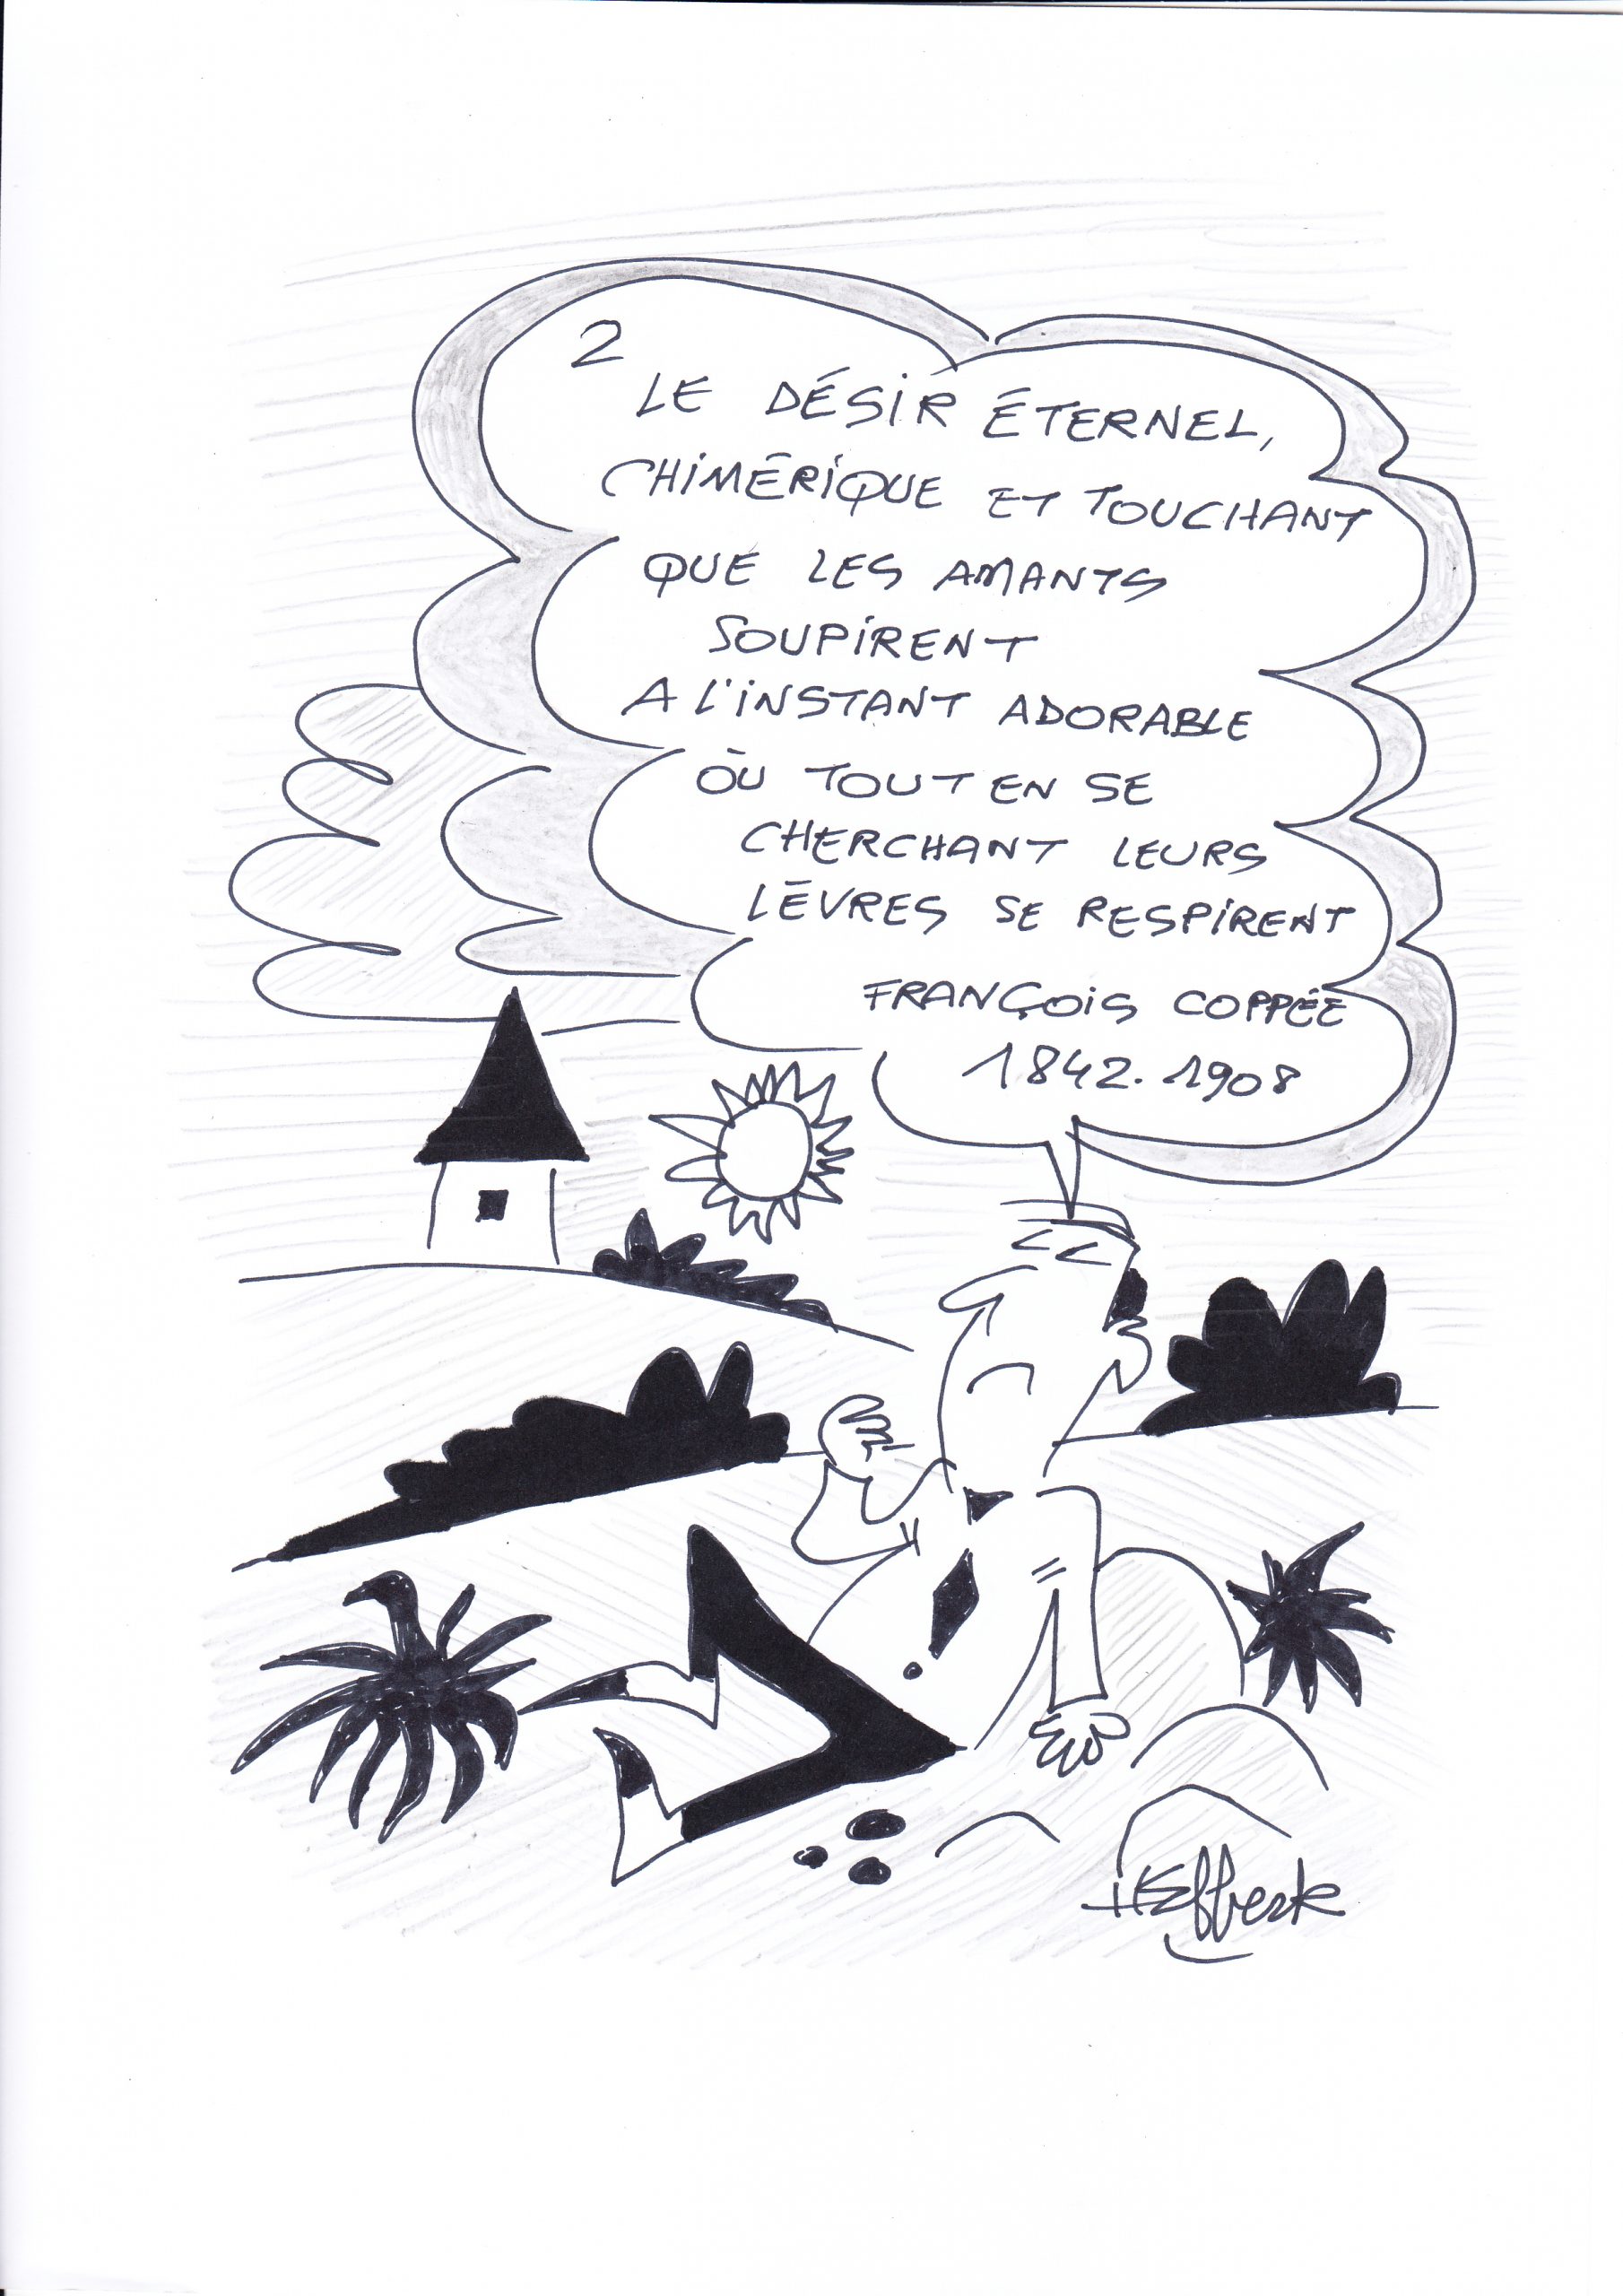 2
LE DÉSIR ÉTERNEL,
CHIMÉRIQUE ET TOUCHANT
QUE LES AMANTS
SOUPIRENT
A L'INSTANT ADORABLE
OÙ TOUT EN SE
CHERCHANT LEURS
LÈVRES SE RESPIRENT
FRANÇOIS COPPÉE
1842.1908